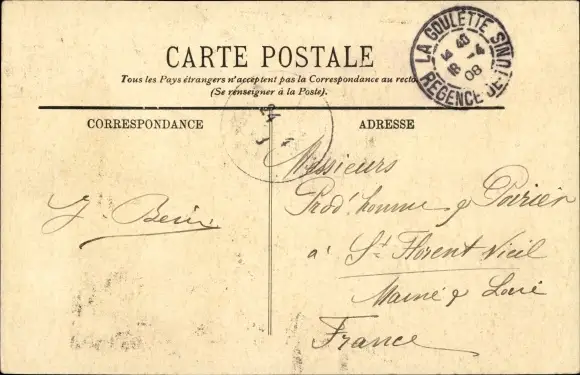 CARTE POSTALE
Tous les Pays étrangers n'acceptent pas la Correspondance au recto
(Se renseigner à la Poste).
LA GOULETTE
REGENCE DE TUNIS
18 -4
08
CORRESPONDANCE
ADRESSE
Messieurs
Prod'homme & Poirier
à St Florent Vieil
Maine & Loire
France
J.